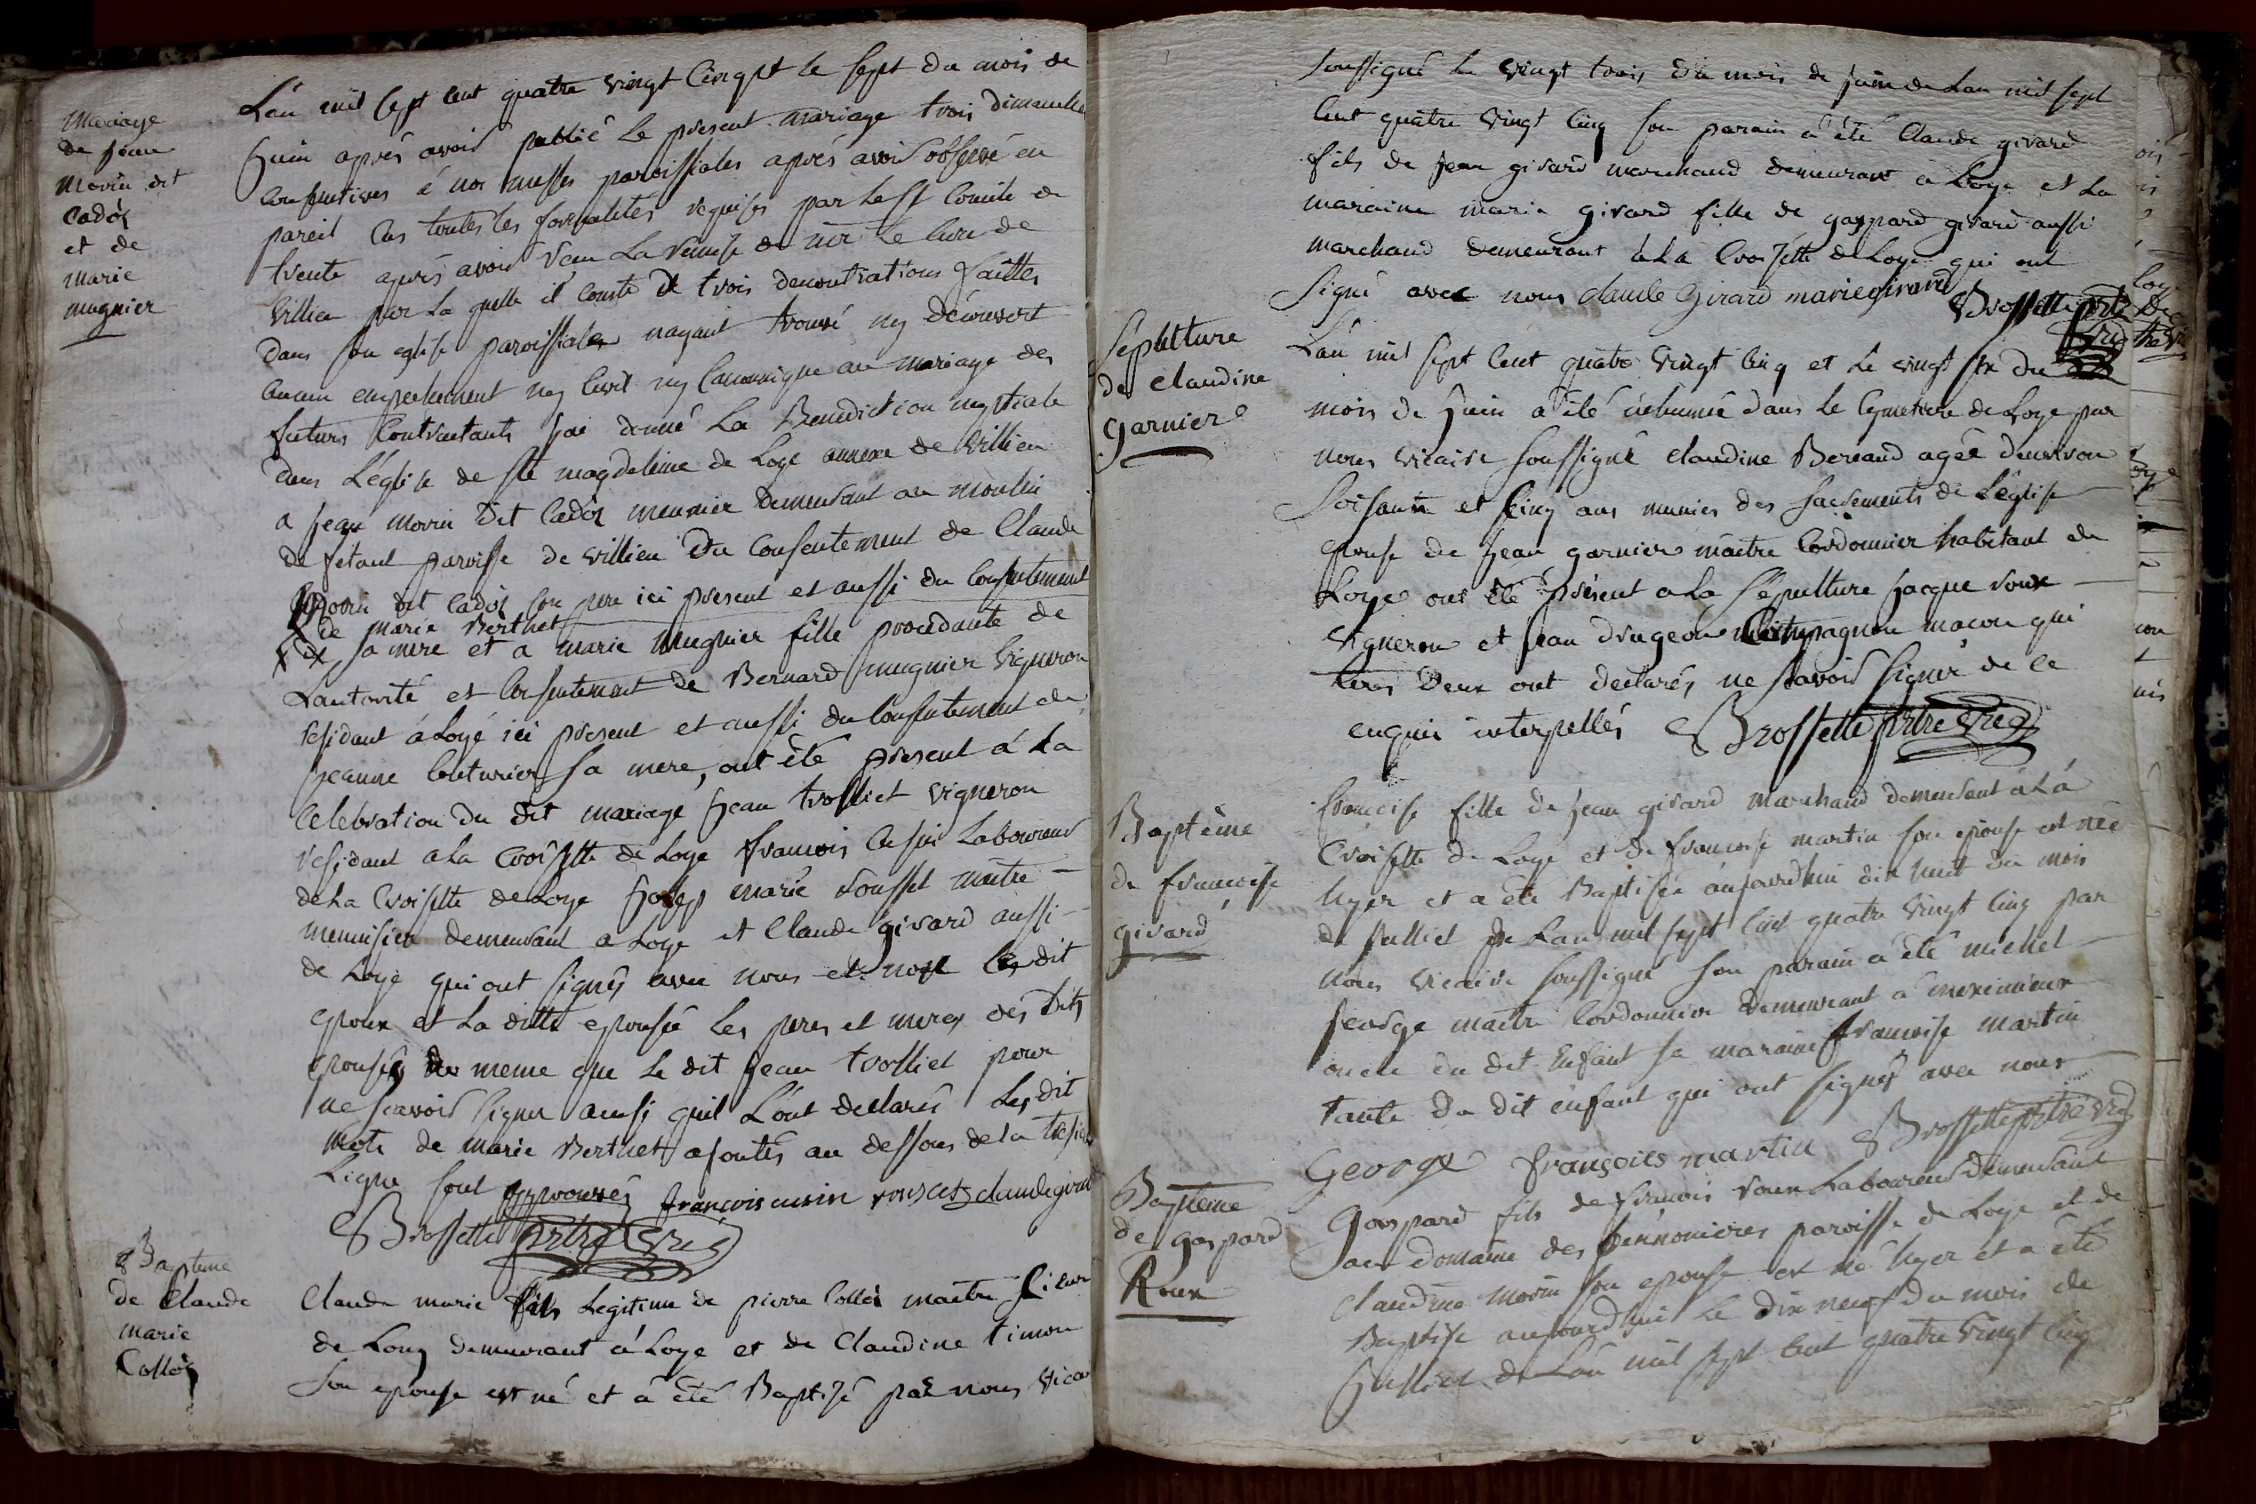 Mariage
de jean
Morin dit
Cadôz
et de
marie
mugnier
L'an mil sept cent quatre vingt cinqt le sept du mois de
juin aprés avoir publié le present mariage trois dimanche
consecutives à nos messes paroissiales aprés avoir observé en
pareil cas toutes les formalités requises par le st concile de
trente aprés avoir veu la remise de mr le curé de
villieu par la quelle il conste de trois denontiations faittes
dans son eglise paroissiale nayant trouvé ny découvert
aucun empechement ny civil ny canonnique au mariage des
futurs contractants jai donné la Benediction nuptiale
dans l'église de ste magdeleine de Loye annexe de villieu
a jean morin dit Cadôz meunier demeurant au moulin
de fetant paroisse de villieu du consentement de Claude
Morin dit cadôz son pere ici present et aussi du consentement
de marie Berthet
sa mere et a marie mugnier fille procedante de
l'autorité et consentement de Bernard mugnier vigneron
residant à Loyé ici present et aussi du consentement de
jeanne couturier sa mere, ont été present à la
celebration du dit mariage jean trolliet vigneron
residant a la croisette de Loye francois cusin laboureur
de la croisette de Loye josep marie rousset maitre
menuisier demeurant a Loye et Claude girard aussi
de Loye qui ont signés avec nous et non les dit
epoux et la ditte epousée les peres et meres des dits
epousés de meme que le dit jean trolliet pour
ne scavoir signer ainsi quil l'ont declarés les dit
mots de marie Berthet ajoutés au dessous de la
ligne sont approuvés françois cusin rouscet claude girard
Brossette prtre vre
Bapteme
de Claude
marie
Colloz
Claude marie fils legitime de pierre Colloz maitre
de Long demeurant à Loye et de Claudine timon
son epouse est né et à été Baptisé par nous vicaire
soussigné le vingt trois du mois de juin de lan mil sept
cent quatre vingt cinq son parain à été Claude girard
fils de jean girard marchand demeurant à Loye et la
maraine marie girard fille de gaspard girard aussi
marchand demeurant à la Croisette de Loye qui ont
signé avec nous claude Girard marie girard
Brossette prtre
vre
Sépulture
de claudine
garnier
L'an mil sept cent quatre vingt cinq et le vingt six du
mois de juin a été inhumée dans le cymetiere de Loye par
nous vicaire soussigné claudine Bereaud agée denviron
soisante et cinq ans munies des sacrements de l'église
epouse de jean garnier maitre cordonnier habitant de
Loye ont été présent a la sépulture jacque roux
vigneron et jean drugeon compagnon maçon qui
tous deux ont declarés ne scavoir signer de ce
enquis interpellés Brossette prtre vre
Baptême
de francoise
girard
francoise fille de jean girard marchand demeurant à la
Croisette de Loye et de francoise martin son epouse est née
hyer et a été Baptisée aujourdhui dix huit du mois
de julliet de lan mil sept cent quatre vingt cinq par
nous vicaire soussigné son parain à été michel
jeorge maitre Cordonnier demeurant à meximieux
oncle du dit enfant sa maraine francoise martin
tante du dit enfant qui ont signés avec nous
George françoies martin Brossette prtre vre
Bapteme
de gaspard
Roux
Gaspard fils de francois roux laboureur demeurant
au domaine des bennonieres paroisse de Loye et de
claudine morin son epouse est né hyer et a été
Baptisé aujourdhui le dix neuf du mois de
julliet de lan mil sept cent quatre vingt cinq